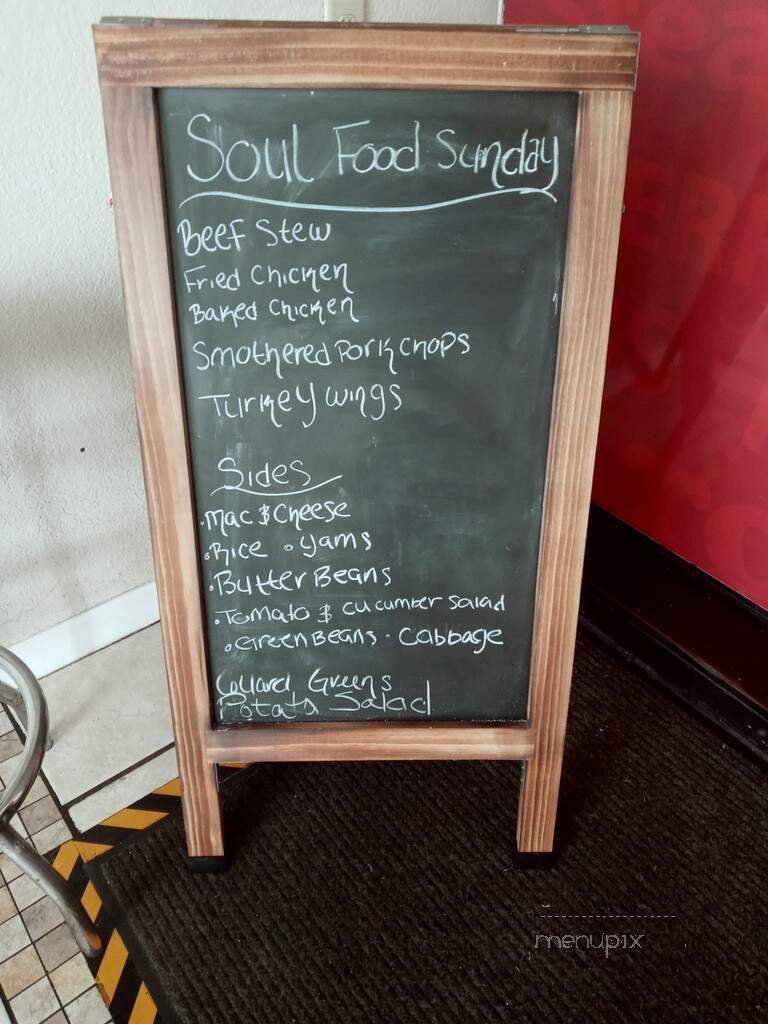 Soul Food Sunday
Beef Stew
Fried Chicken
Baked Chicken
Smothered Pork Chops
Turkey Wings
Sides
• Mac & Cheese
• Rice • Yams
• Butter Beans
• Tomato & cucumber salad
• Green Beans • Cabbage
Collard Greens
Potato Salad
menupix